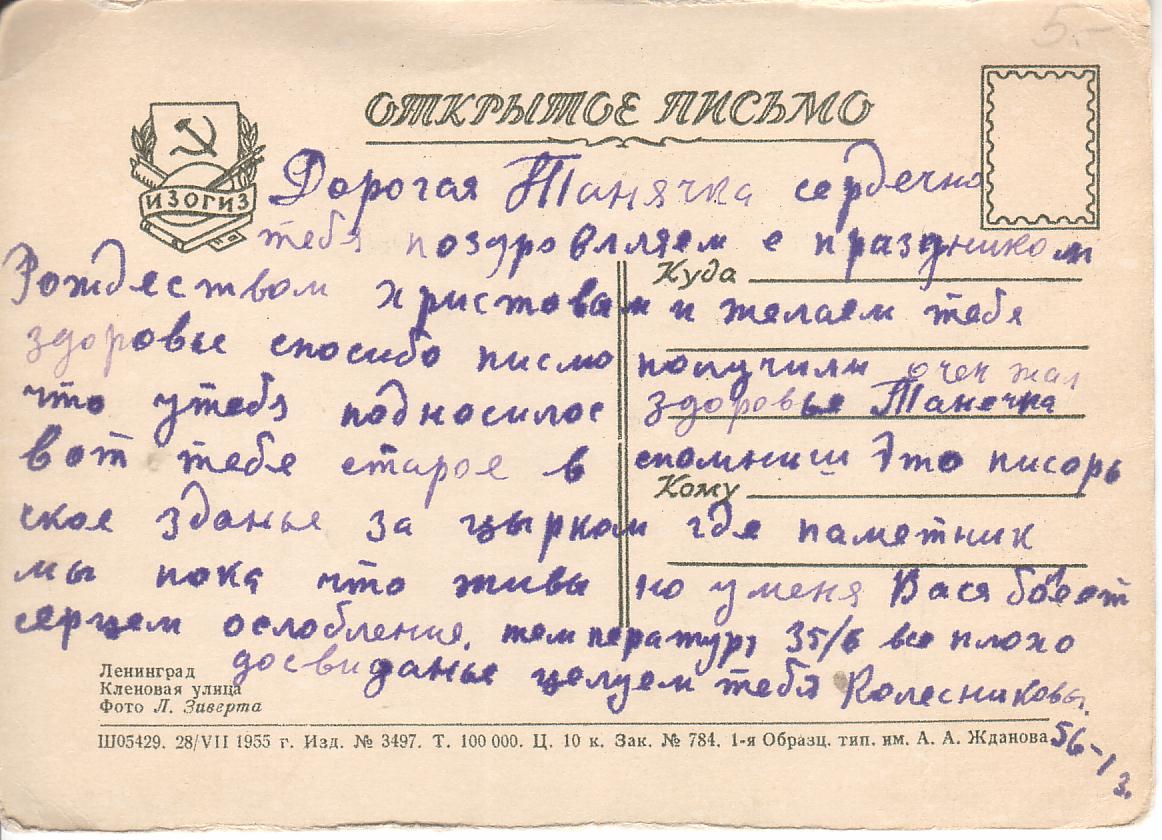 5.-
ОТКРЫТОЕ ПИСЬМО
ИЗОГИЗ
Дорогая Танячка сердечно
тебя поздровлляем с праздником
Рождеством христовам и желаем тебя
Куда
здоровье спосибо писмо получили очен жал
что утебя подносилос здоровье Танечка
вот тебе старое в спомниш это
Кому
ское зданье за цырком где паметник
мы пока что живы но уменя Вася болеет
серцем ослобление, температур 35/6 все плохо
досвиданье целуем тебя Колесниковы.
56-1
Ленинград
Кленовая улица
Фото Л. Зиверта
Ш05429. 28/VII 1955 г. Изд. № 3497. Т. 100 000. Ц. 10 к. Зак. № 784. 1-я Образц. тип. им. А. А. Жданова